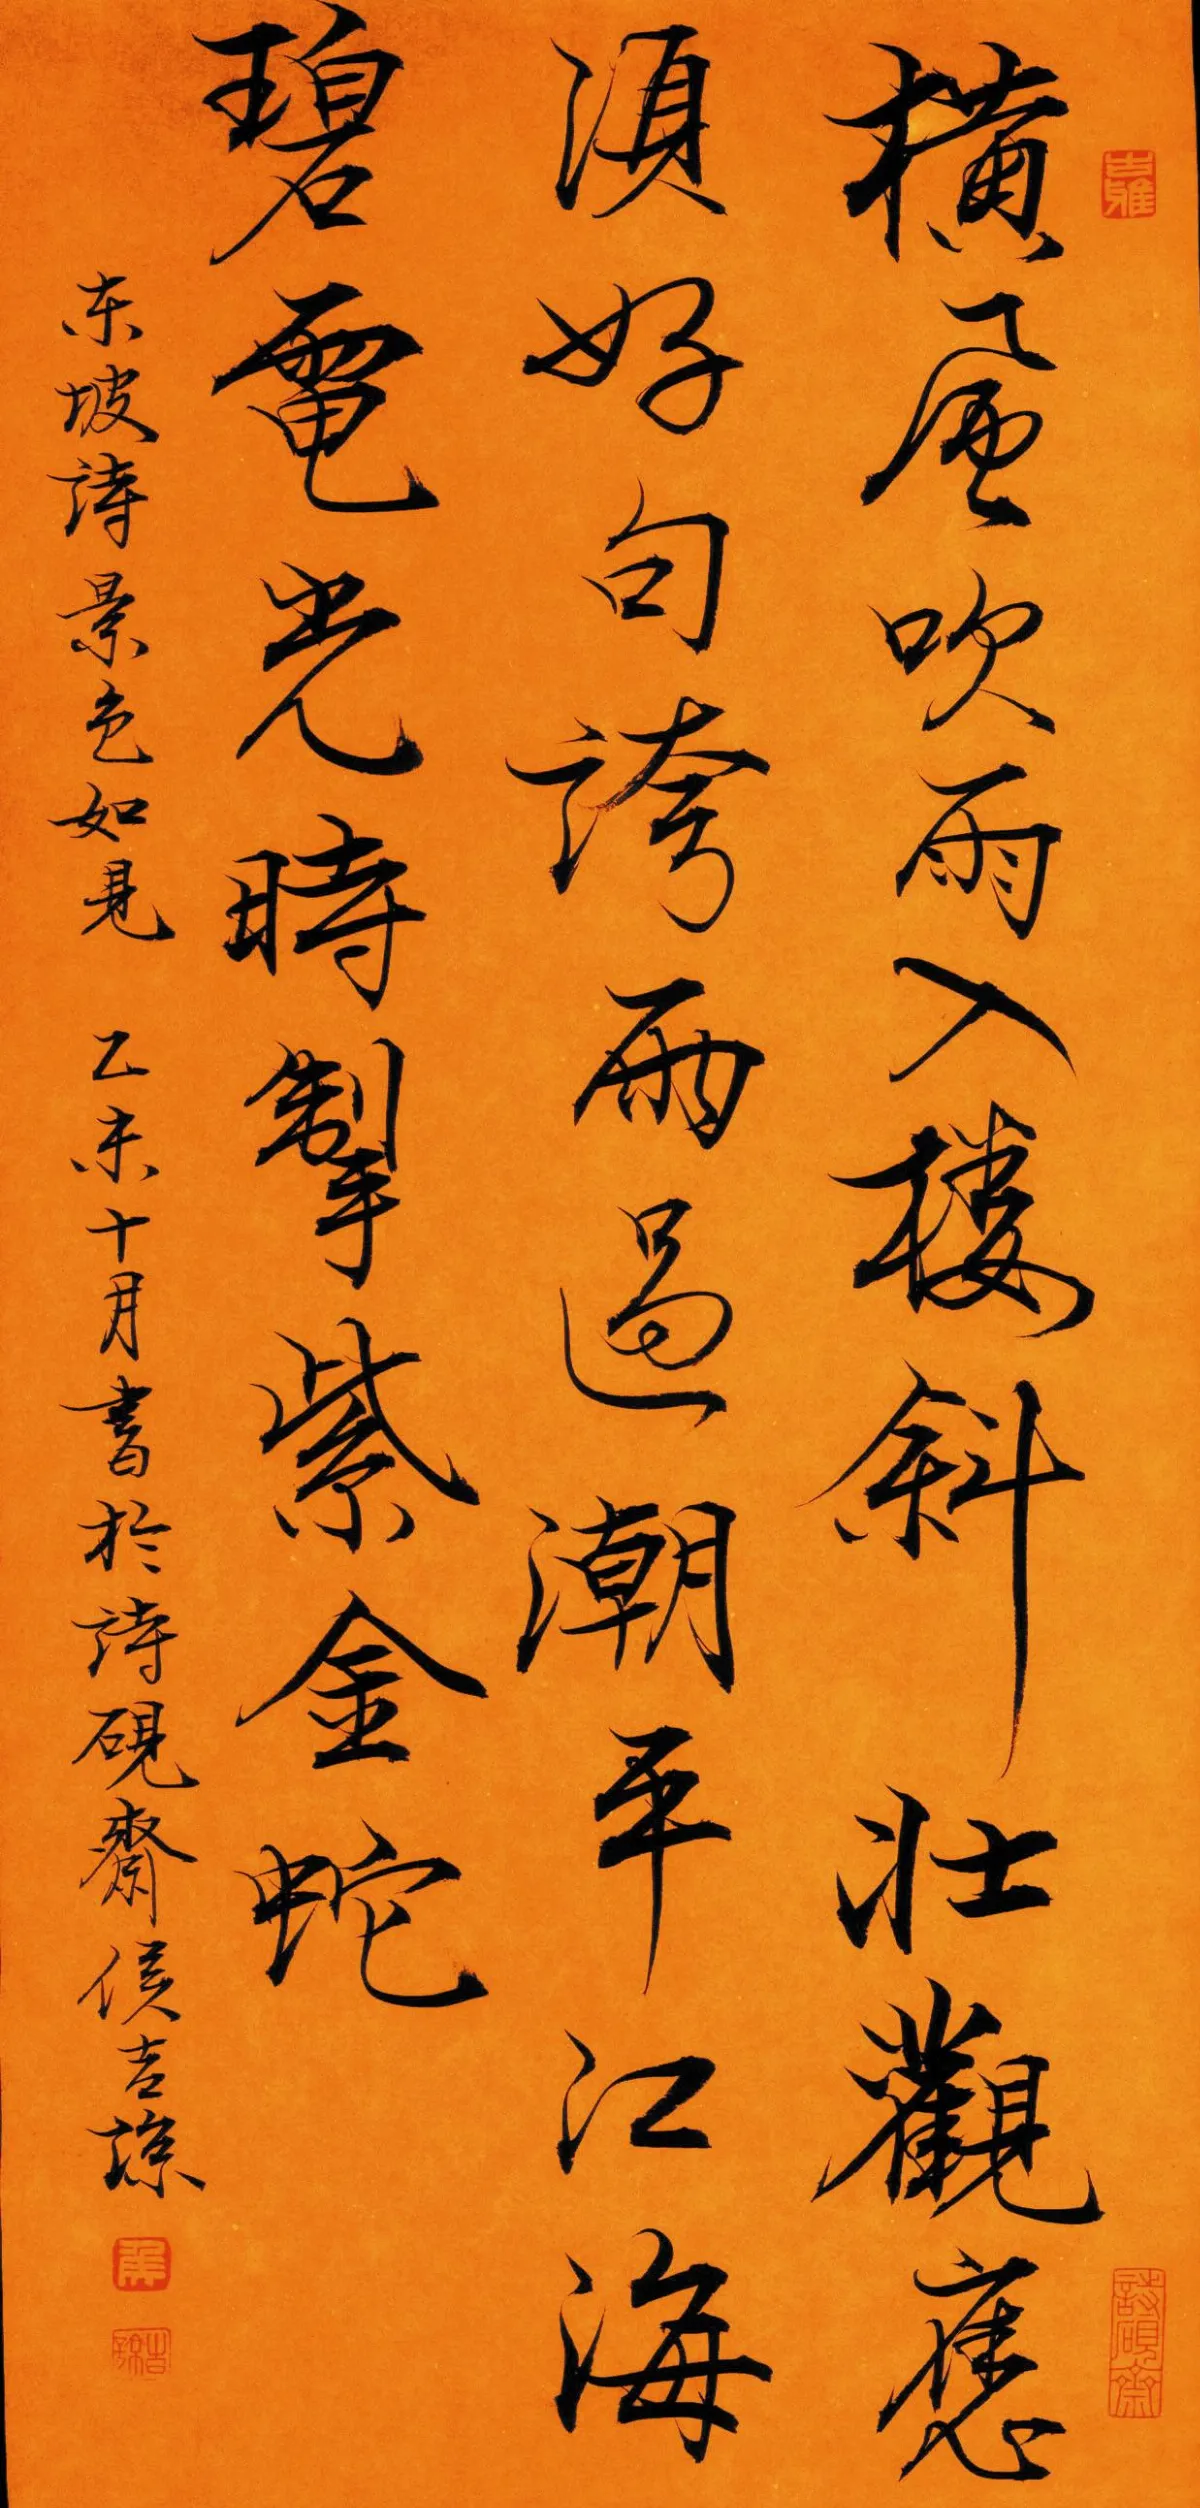 橫風吹雨入楼斜壯觀應
須好句誇雨過潮平江海
碧電光時掣紫金蛇
东坡詩景色如見 乙未十月書於詩硯齋侯吉諒
詩硯齋